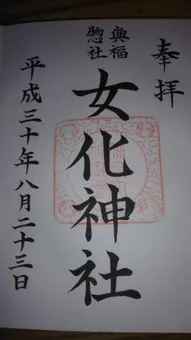 奉拝
惣社
女化神社
平成三十年八月二十三日